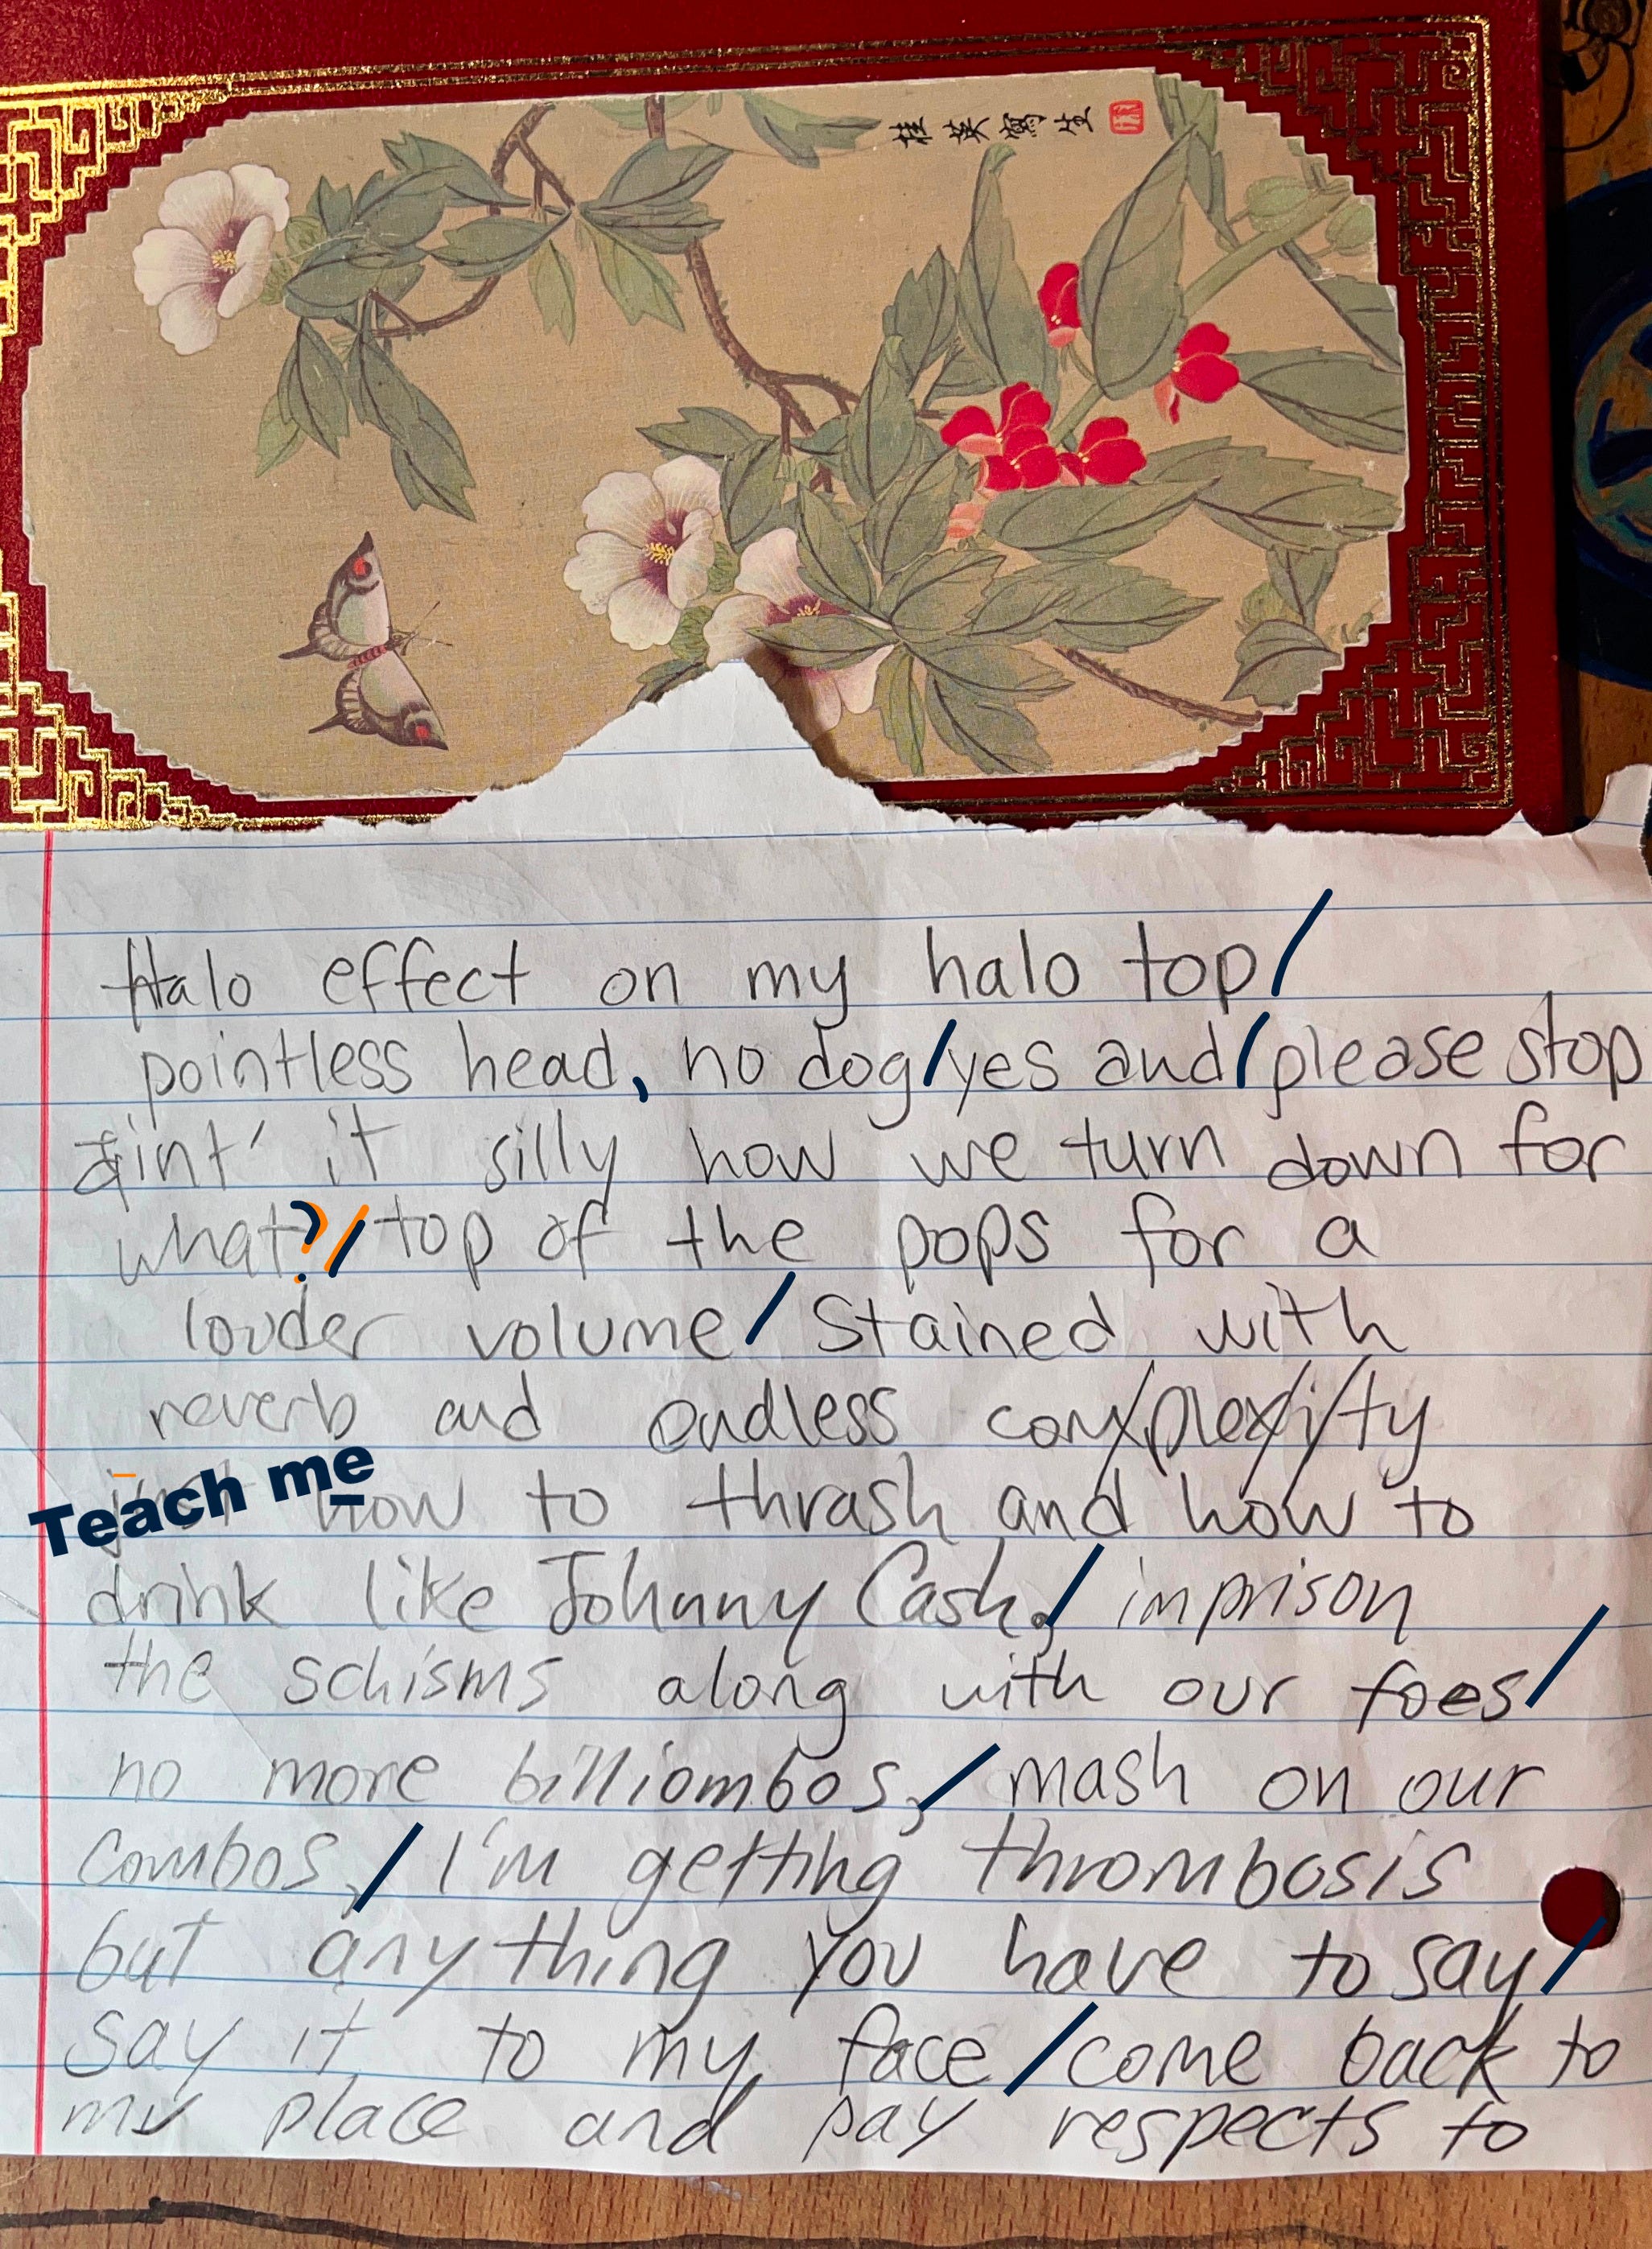 寫生
Halo effect on my halo top/
pointless head, no dog/yes and/please stop
aint' it silly how we turn down for
what?/top of the pops for a
louder volume/Stained with
reverb and endless com/plex/i/ty
Teach me how to thrash and how to
drink like Johnny Cash,/imprison
the schisms along with our foes/
no more billiombos,/mash on our
Combos,/I'm getting thrombosis
but anything you have to say/
say it to my face/come back to
my place and pay respects to